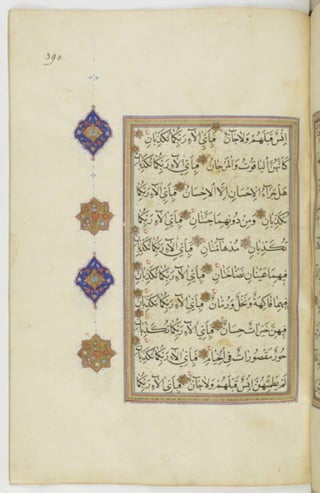 390
إِنْسٌ قَبْلَهُمْ وَلَا جَانٌّ فَبِأَيِّ آلَاءِ رَبِّكُمَا تُكَذِّبَانِ
كَأَنَّهُنَّ الْيَاقُوتُ وَالْمَرْجَانُ فَبِأَيِّ آلَاءِ رَبِّكُمَا تُكَذِّبَانِ
هَلْ جَزَاءُ الْإِحْسَانِ إِلَّا الْإِحْسَانُ فَبِأَيِّ آلَاءِ رَبِّكُمَا
تُكَذِّبَانِ وَمِنْ دُونِهِمَا جَنَّتَانِ فَبِأَيِّ آلَاءِ رَبِّكُمَا
تُكَذِّبَانِ مُدْهَامَّتَانِ فَبِأَيِّ آلَاءِ رَبِّكُمَا تُكَذِّبَانِ
فِيهِمَا عَيْنَانِ نَضَّاخَتَانِ فَبِأَيِّ آلَاءِ رَبِّكُمَا تُكَذِّبَانِ
فِيهِمَا فَاكِهَةٌ وَنَخْلٌ وَرُمَّانٌ فَبِأَيِّ آلَاءِ رَبِّكُمَا تُكَذِّبَانِ
فِيهِنَّ خَيْرَاتٌ حِسَانٌ فَبِأَيِّ آلَاءِ رَبِّكُمَا تُكَذِّبَانِ
حُورٌ مَقْصُورَاتٌ فِي الْخِيَامِ فَبِأَيِّ آلَاءِ رَبِّكُمَا تُكَذِّبَانِ
لَمْ يَطْمِثْهُنَّ إِنْسٌ قَبْلَهُمْ وَلَا جَانٌّ فَبِأَيِّ آلَاءِ رَبِّكُمَا